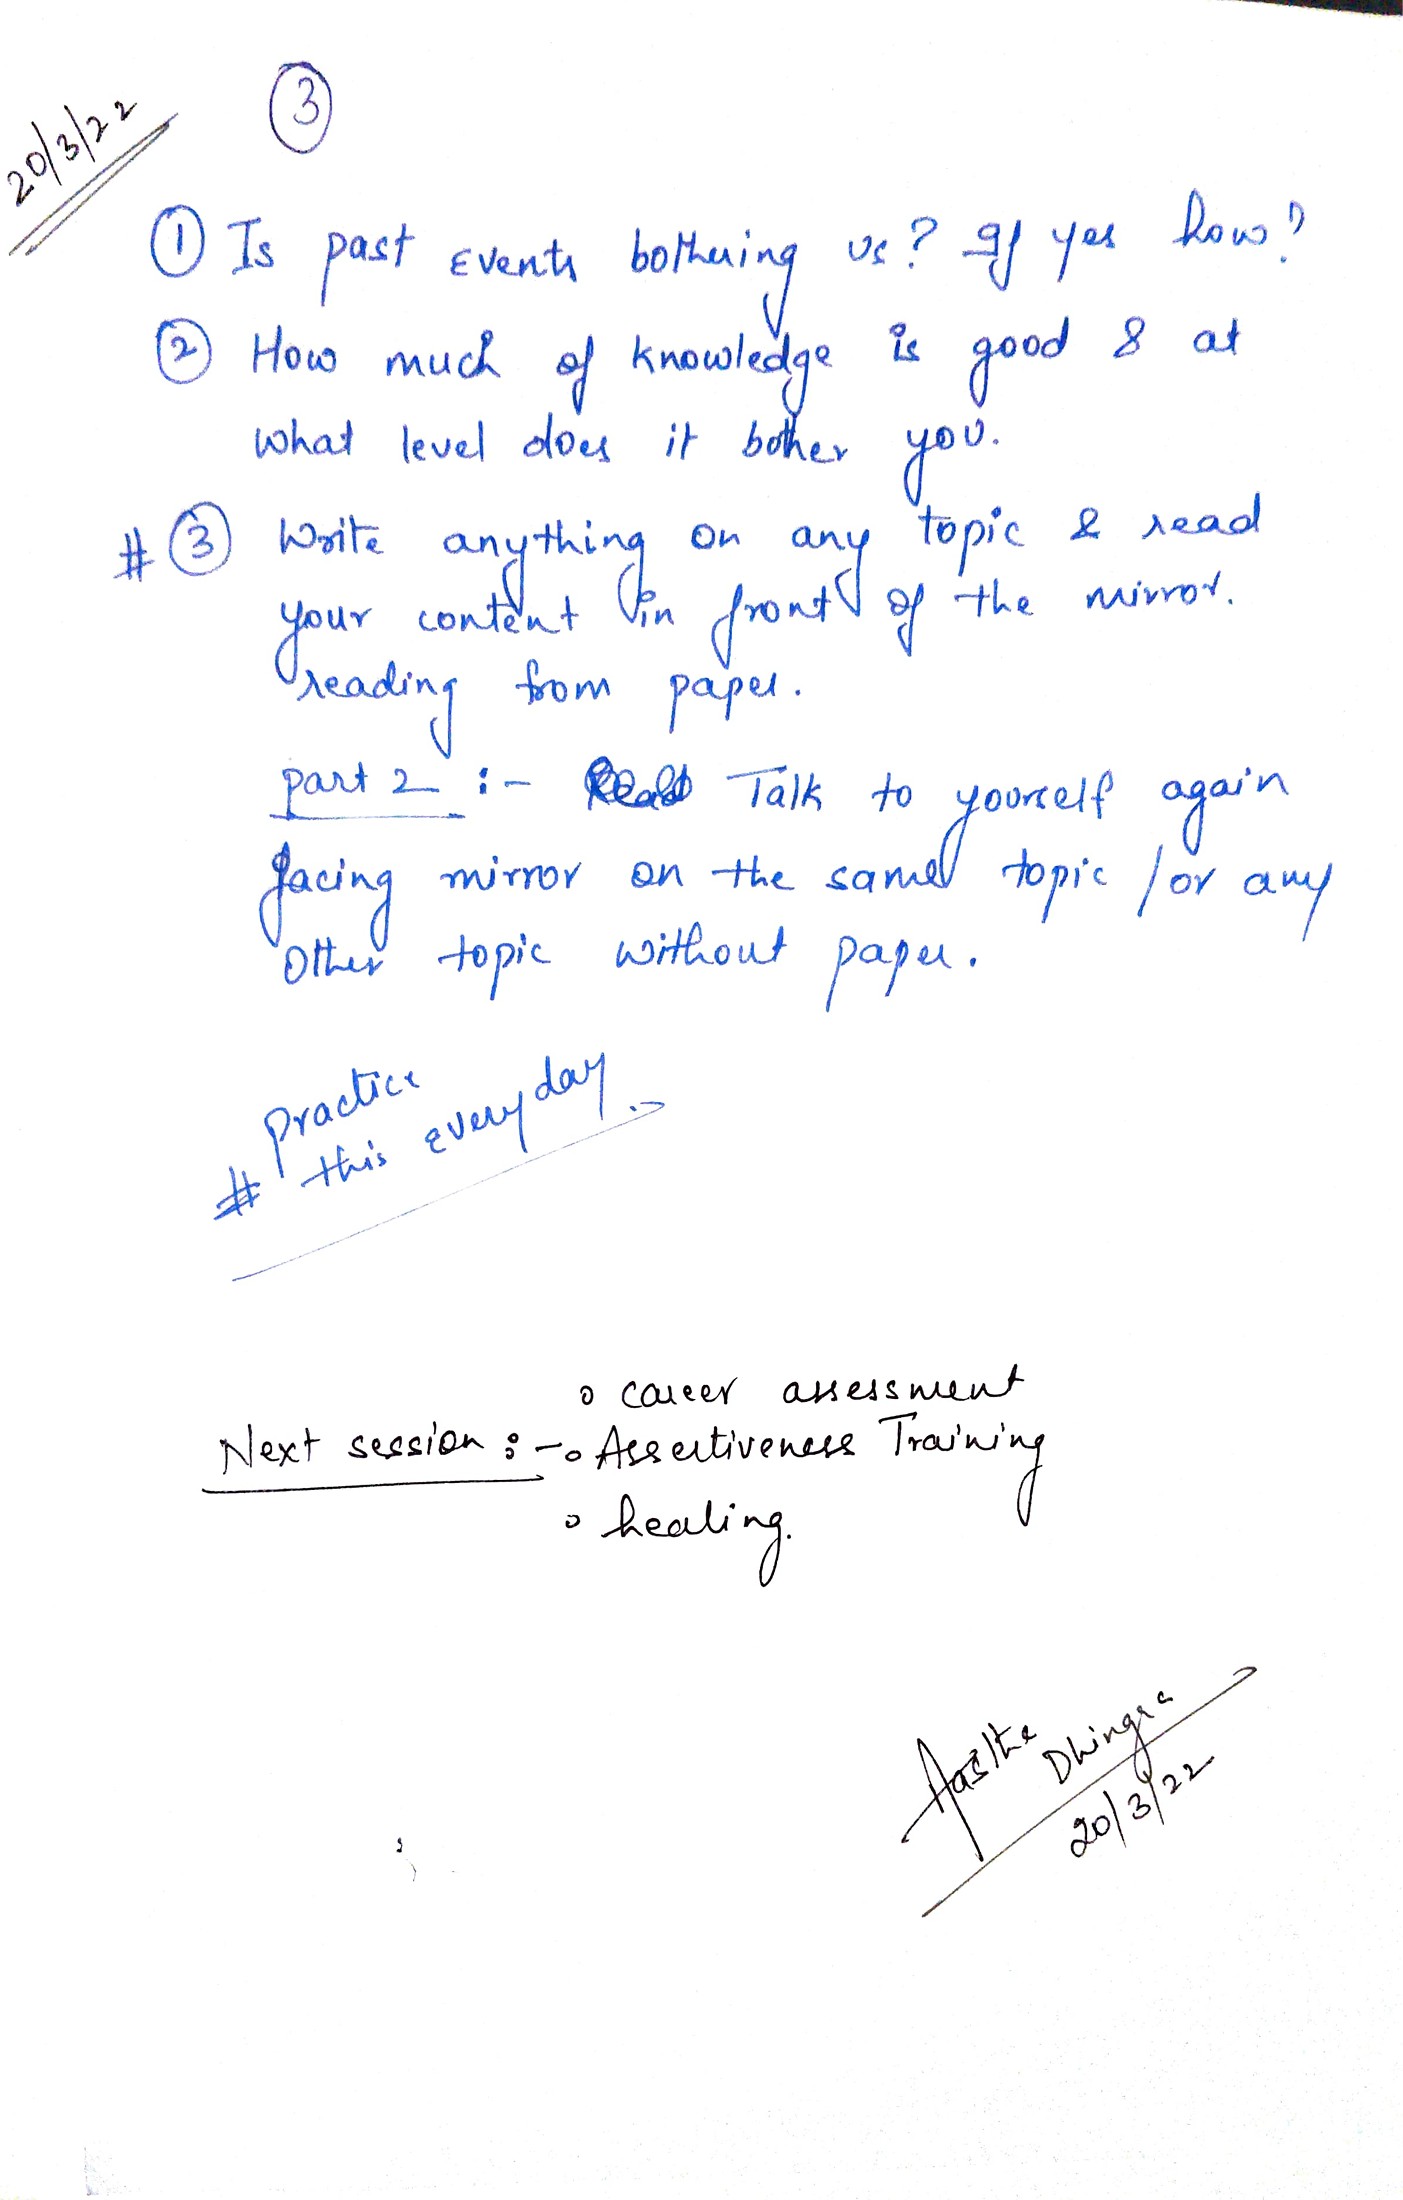 20/3/22
3
① Is past events bothering us? If yes how?
② How much of knowledge is good & at
what level does it bother you.
# ③ Write anything on any topic & read
your content in front of the mirror.
reading from paper.
part 2 :- Talk to yourself again
facing mirror on the same topic / or any
other topic without paper.
# practice
this everyday
∘ career assessment
Next session :- ∘ Assertiveness Training
∘ healing.
Aastha Dhingra
20/3/22